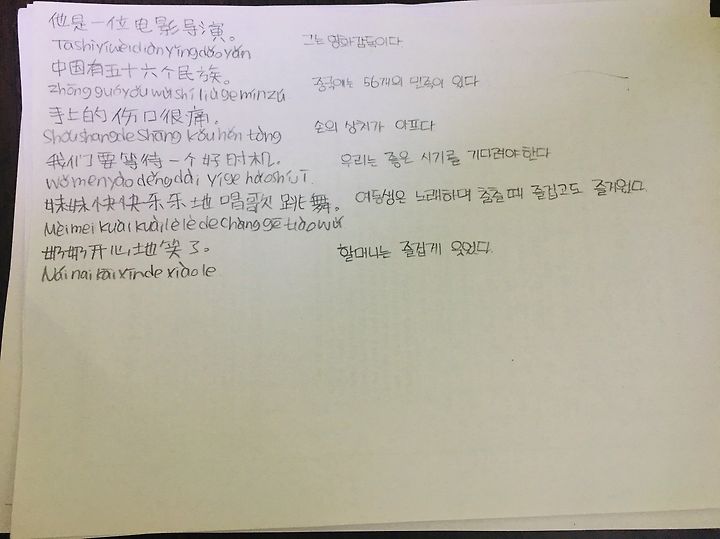 他是一位电影导演。 그는 영화감독이다
Tashìyíwèidiànyǐngdǎoyǎn
中国有五十六个民族。 중국에는 56개의 민족이 있다
Zhōngguóyǒuwǔshíliùgemínzú
手上的伤口很痛。 손의 상처가 아프다
Shǒushangdeshāngkǒuhěntòng
我们要等待一个好时机。 우리는 좋은 시기를 기다려야 한다
wǒmenyàoděngdàiyígehǎoshíjī
妹妹快快乐乐地唱歌跳舞。 여동생은 노래하며 춤출 때 즐겁고도 즐거웠다.
Mèimeikuàikuàilèlèdechànggētiàowǔ
奶奶开心地笑了。 할머니는 즐겁게 웃었다.
Nǎinaikāixīndexiàole